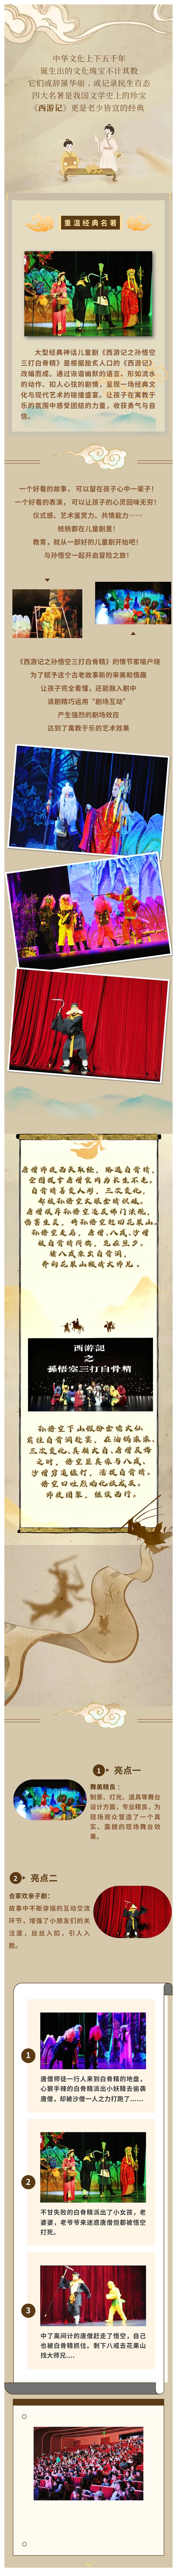 中华文化上下五千年
诞生出的文化瑰宝不计其数
它们或辞藻华丽，或记录民生百态
四大名著是我国文学史上的珍宝
《西游记》更是老少皆宜的经典
重温经典名著
大型经典神话儿童剧《西游记之孙悟空
三打白骨精》是根据脍炙人口的《西游记》
改编而成。通过诙谐幽默的语言，形如流水
的动作、扣人心弦的剧情，呈现一场经典文
化与现代艺术的碰撞盛宴。让孩子在寓教于
乐的氛围中感受团结的力量，收获勇气与自
信。
一个好看的故事，可以留在孩子心中一辈子！
一个好看的表演，可以让孩子的心灵回味无穷！
仪式感、艺术鉴赏力、共情能力……
统统都在儿童剧里！
教育，就从一部好的儿童剧开始吧！
与孙悟空一起开启冒险之旅！
《西游记之孙悟空三打白骨精》的情节家喻户晓
为了赋予这个古老故事新的审美和情趣
让孩子完全看懂，还能融入剧中
该剧精巧运用“剧场互动”
产生强烈的剧场效应
达到了寓教于乐的艺术效果
唐僧师徒西天取经，路遇白骨精，
全因误食唐僧家肉为长生不老。
白骨精善变人形，三次变化，
却被孙悟空火眼金睛识破。
唐僧咬斥孙悟空违反师门法规，
伤害生灵，将孙悟空贬回花果山。
孙悟空走后，唐僧、八戒、沙僧
被白骨精所骗，危在旦夕。
猪八戒杀出白骨洞，
奔向花果山搬请大师兄。
西游記
之
孫悟空三打白骨精
孙悟空于山假扮金池大仙
前往白骨洞赴宴，在油锅滚沸、
三次变化、真相大白、唐僧反悔
之时，悟空显真像与八戒、
沙僧穷追猛打，活捉白骨精。
悟空口吐烈焰化妖成灰。
师徒团聚，继续西行。
1 亮点一
舞美精良：
制景、灯光、道具等舞台
设计方面，专业精良，为
现场观众营造了一个真
实、震撼的现场舞台效
果。
2 亮点二
合家欢亲子剧：
故事中不断穿插的互动交流
环节，增强了小朋友们的关
注度，丝丝入扣，引人入
胜。
1
唐僧师徒一行人来到白骨精的地盘，
心狠手辣的白骨精派出小妖精去偷袭
唐僧，却被沙僧一人之力打跑了……
2
不甘失败的白骨精派出了小女孩，老
婆婆，老爷爷来迷惑唐僧但都被悟空
打死。
3
中了离间计的唐僧赶走了悟空，自己
也被白骨精抓住。剩下八戒去花果山
找大师兄....